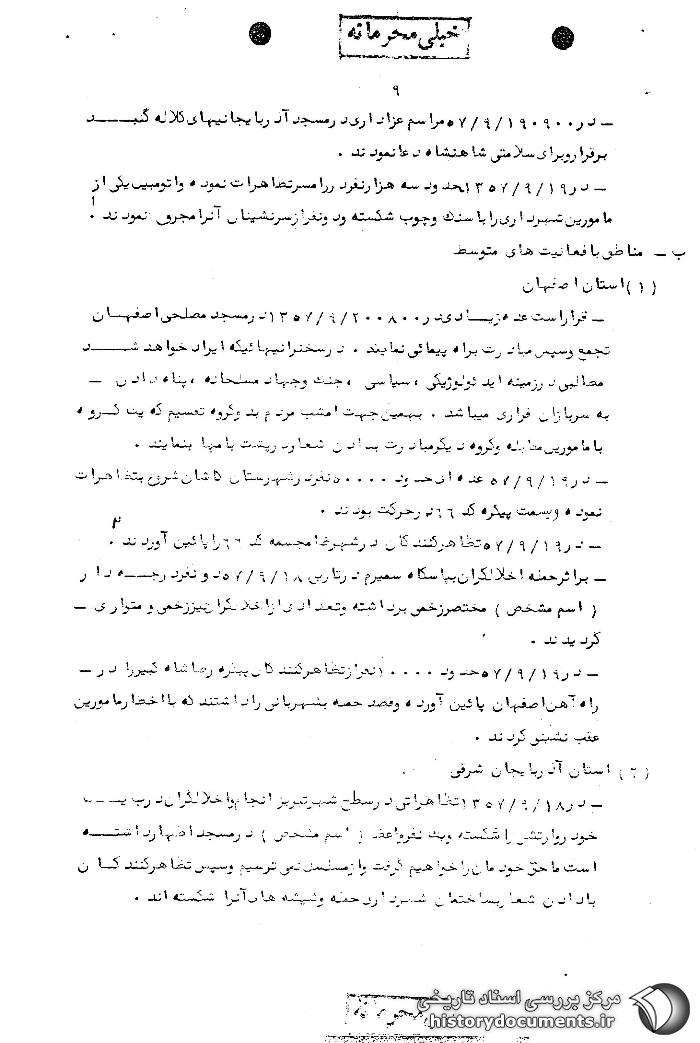 خیلی محرمانه
۹
ـ در ۵۷/۹/۱۹۰۹۰۰ مراسم عزاداری در مسجد آذربایجانیهای کلاله گنبد
برقرار و برای سلامتی شاهنشاه دعا نمودند .
ـ در ۱۳۵۷/۹/۱۹ حدود سه هزار نفر در رامسر تظاهرات نموده و اتومبیل یکی از
مامورین شهرداری را با سنگ و چوب شکسته و دو نفر از سرنشینان آنرا مجروح نمودند .
ب ـ مناطق با فعالیت های متوسط
(۱) استان اصفهان
ـ قرار است عده زیادی در ۱۳۵۷/۹/۲۰۰۸۰۰ در مسجد مصلحی اصفهان
تجمع و سپس مبادرت براه پیمائی نمایند . در سخنرانیهائیکه ایراد خواهد شد
مطالبی در زمینه ایدئولوژیکی ، سیاسی ، جنگ و جهاد مسلحانه ، پناه دادن ـ
به سربازان فراری میباشد . بهمین جهت امشب مردم بدو گروه تقسیم که یک گروه
با مامورین مقابله و گروه دیگر مبادرت بدادن شعار در پشت بامها بنمایند .
ـ در ۵۷/۹/۱۹ عده ای حدود ۵۰۰۰۰ نفر در شهرستان کاشان شروع بتظاهرات
نموده و بسمت پیکره کد ۶۶ در حرکت بودند .
ـ در ۵۷/۹/۱۹ تظاهرکنندگان در شهرضا مجسمه کد ۶۶ را پائین آوردند . ۲
ـ براثر حمله اخلالگران بپاسگاه سمیرم در تاریخ ۵۷/۹/۱۸ دو نفر درجه دار
( اسم مشخص ) مختصر زخمی برداشته و تعدادی از اخلالگران نیز زخمی و متواری ـ
گردیدند .
ـ در ۵۷/۹/۱۹ حدود ۱۰۰۰۰ نفر از تظاهرکنندگان پیکره رضا شاه کبیر را در ـ
راه آهن اصفهان پائین آورده و قصد حمله بشهربانی را داشتند که با اخطار مامورین
عقب نشینی کردند .
(۲) استان آذربایجان شرقی
ـ در ۱۳۵۷/۹/۱۸ تظاهراتی در سطح شهر تبریز انجام و اخلالگران درب یک
خودرو ارتش را شکسته و یک نفر واعظ ( اسم مشخص ) در مسجد اظهار داشته
است ما حق خودمان را خواهیم گرفت و از مسلسل نمی ترسیم و سپس تظاهرکنندگان
با دادن شعار بساختمان شهرداری حمله و شیشه های آنرا شکسته اند .
مرکز بررسی اسناد تاریخی
historydocuments.ir